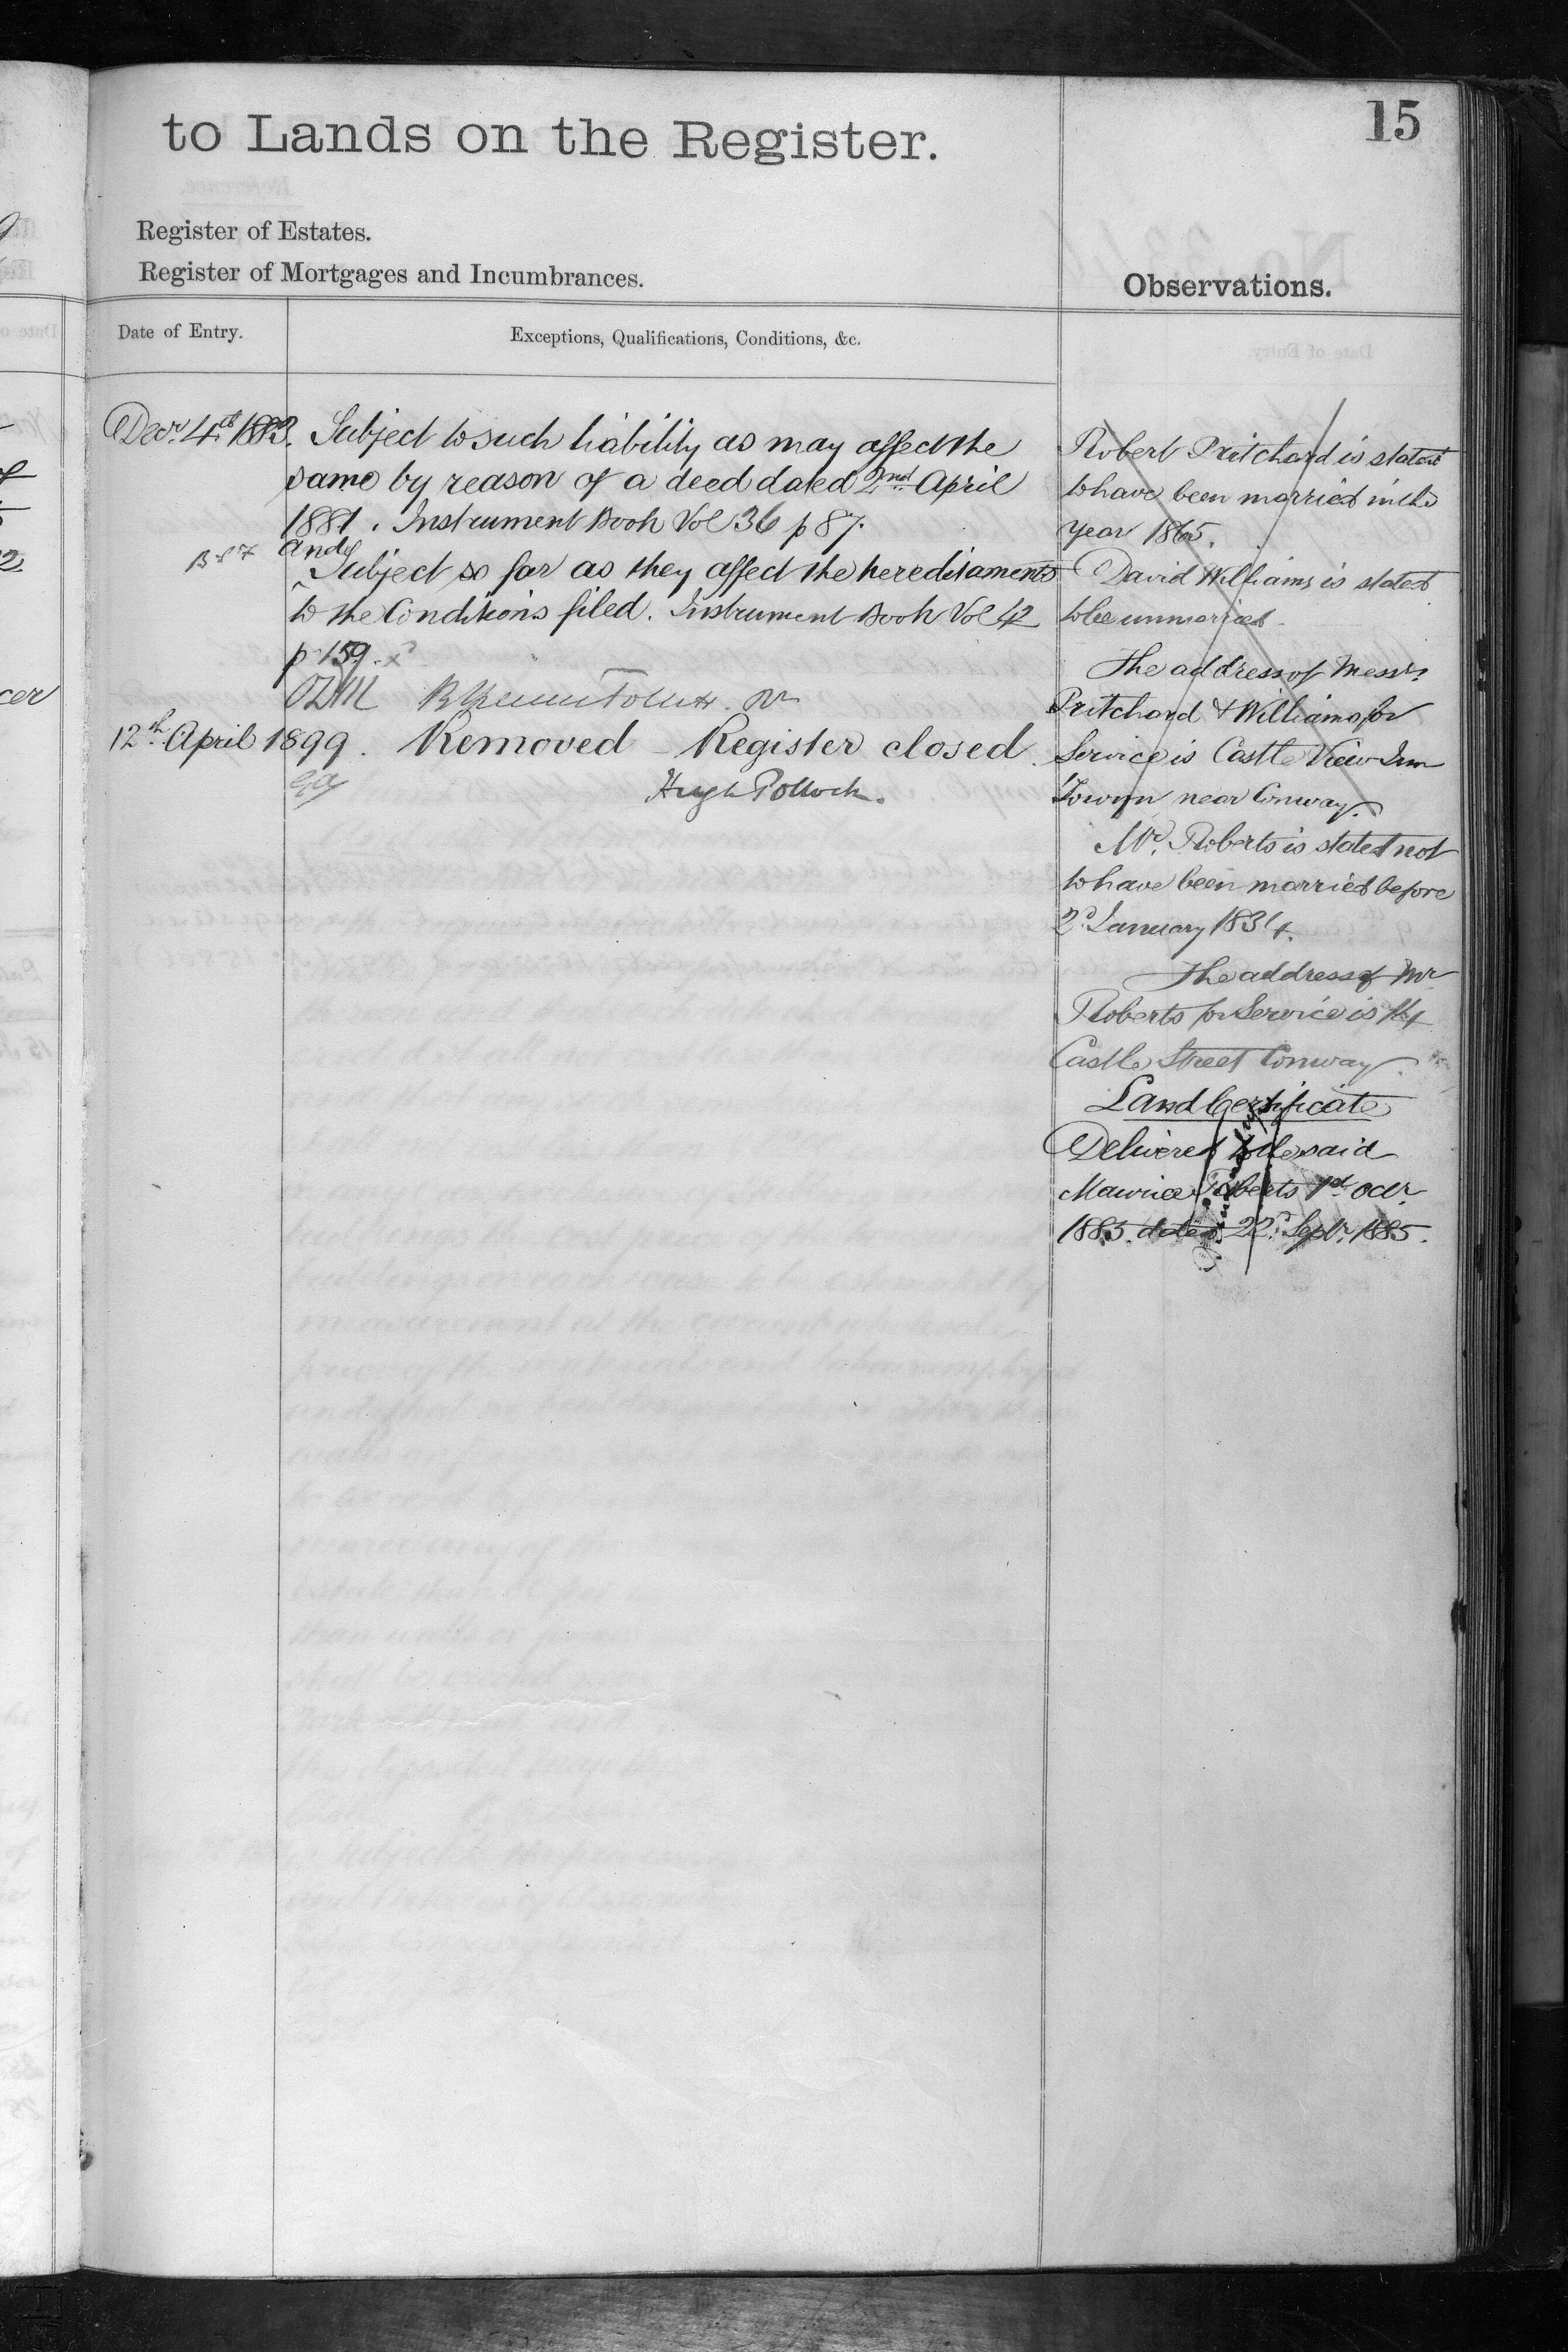 15
to Lands on the Register.
Register of Estates.
Register of Mortgages and Incumbrances.
Observations.
Date of Entry.
Exceptions, Qualifications, Conditions, &c.
Decr. 4th 1883. Subject to such liability as may affect the
same by reason of a deed dated 2nd April
1881. Instrument Book Vol 36 p 87.
and
Subject so far as they affect the hereditaments
to the Conditions filed. Instrument Book Vol 42
p 159.
12th April 1899. Removed - Register closed.
Hugh Pollock.
Robert Pritchard is stated
to have been married in the
year 1865.
David Williams is stated
to be unmarried.
The address of Messrs.
Pritchard & Williams for
Service is Castle View Inn
Towyn near Conway.
Mr. Roberts is stated not
to have been married before
2d January 1834.
The address of Mr
Roberts for Service is 14
Castle Street Conway.
Land Certificate
Delivered to the said
Maurice Roberts 1st Octr.
1885. dated 22d Septr. 1885.